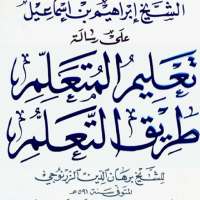 الشيخ إبراهيم بن إسماعيل
على رسالة
تعليم المتعلم
طريق التعلم
للشيخ برهان الدين الزرنوجي
المتوفى سنة ٥٩١هـ